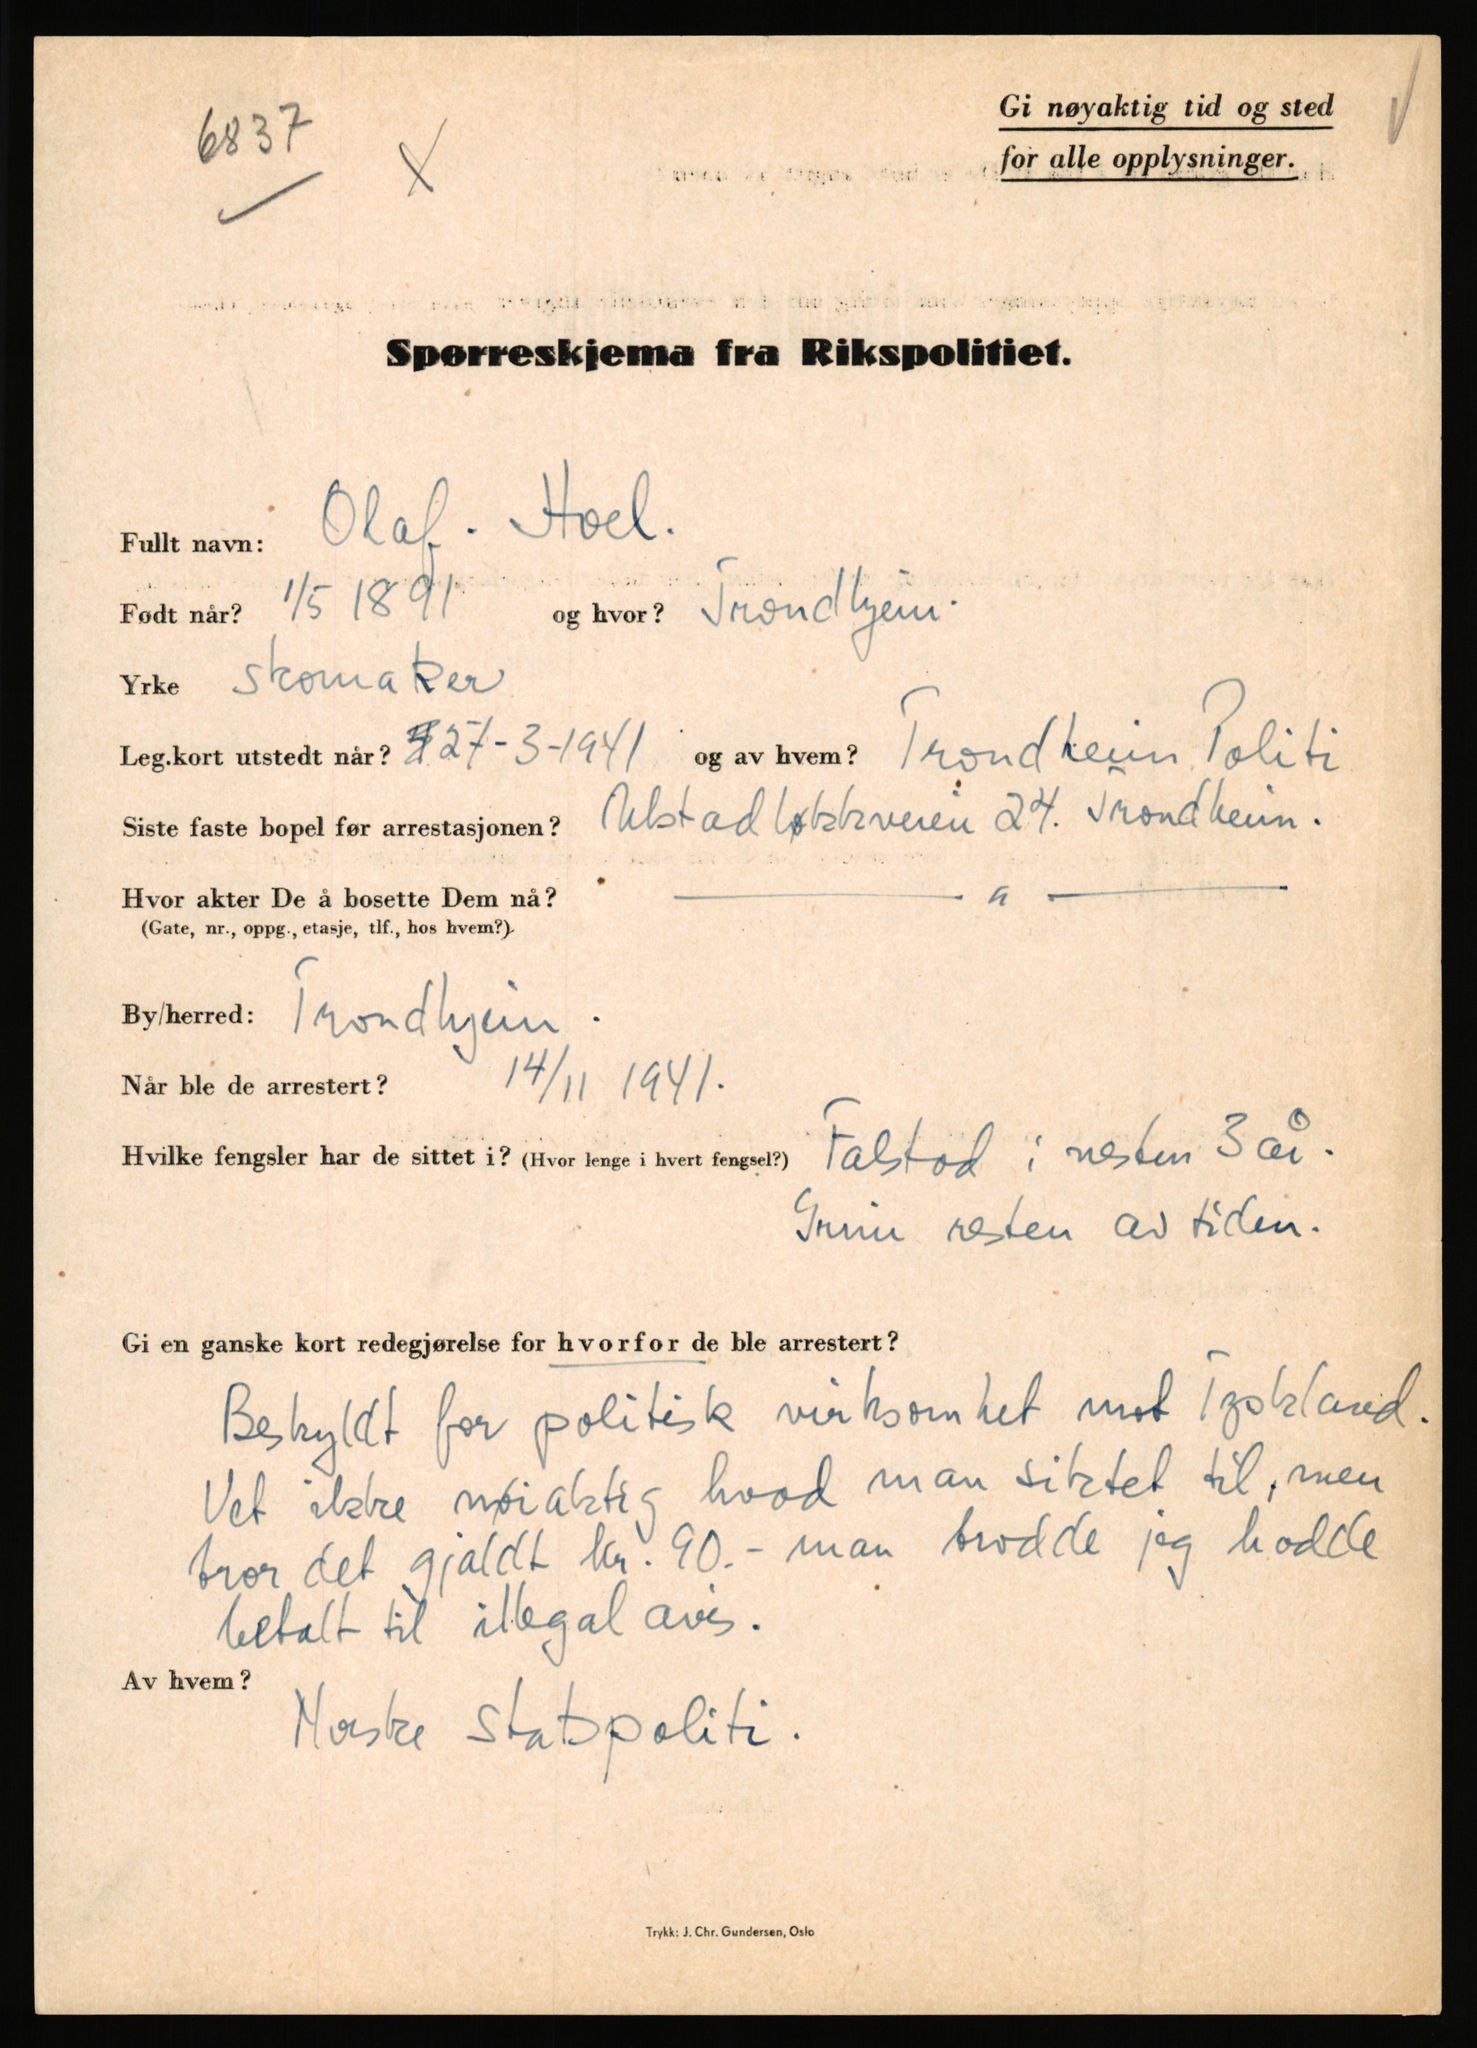 6837
X
Gi nøyaktig tid og sted
for alle opplysninger.
Spørreskjema fra Rikspolitiet.
Fullt navn: Olaf. Hoel.
Født når? 1/5 1891 og hvor? Trondhjem.
Yrke skomaker
Leg.kort utstedt når? 27-3-1941 og av hvem? Trondheim Politi
Siste faste bopel før arrestasjonen? Ulstadløkkveien 24. Trondheim.
Hvor akter De å bosette Dem nå? — " —
(Gate, nr., oppg., etasje, tlf., hos hvem?)
By/herred: Trondhjem.
Når ble de arrestert? 14/11 1941.
Hvilke fengsler har de sittet i? (Hvor lenge i hvert fengsel?) Falstad i nesten 3 år.
Grini resten av tiden.
Gi en ganske kort redegjørelse for hvorfor de ble arrestert?
Beskyldt for politisk virksomhet mot Tyskland.
Vet ikke nøiaktig hvad man siktet til, men
tror det gjaldt kr. 90.- man trodde jeg hadde
betalt til illegal avis.
Av hvem? Norske Statspoliti.
Trykk: J. Chr. Gundersen, Oslo